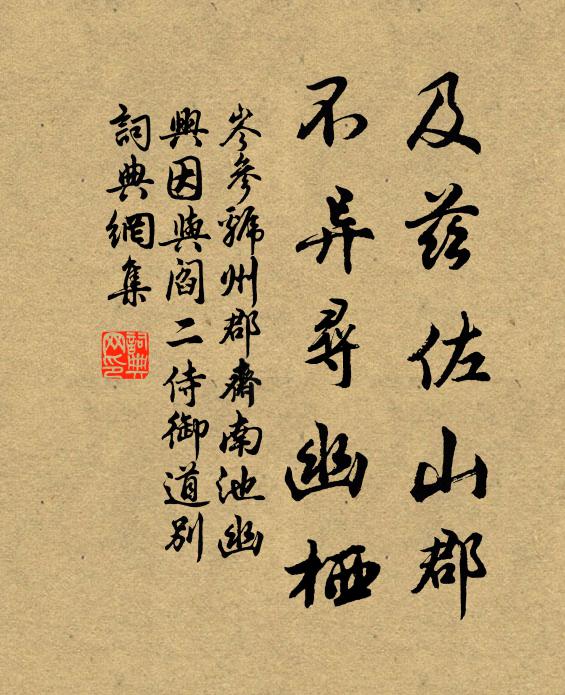 及茲佐山郡
不异尋幽栖
岑參虢州郡齋南池幽
興因與閻二侍御道別
詞典網集
詞典
网印